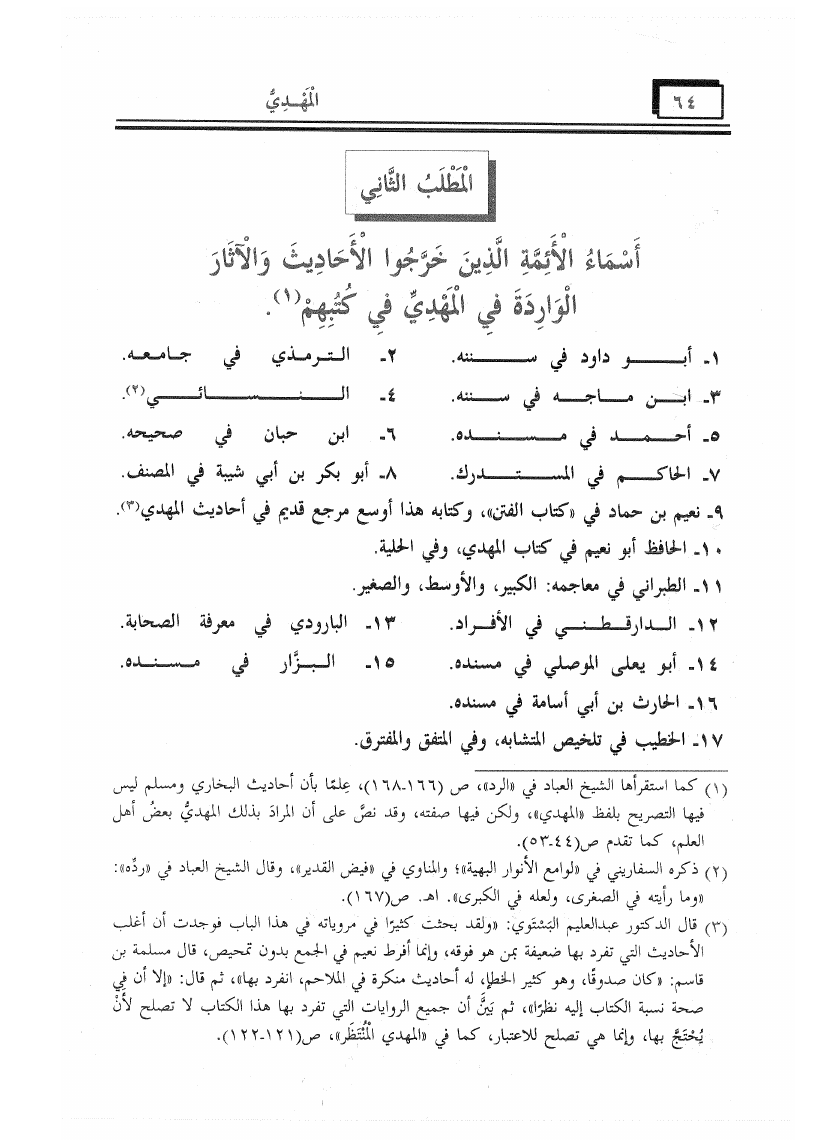 ٦٤
الْمَهْدِيُّ
الْمَطْلَبُ الثَّانِي
أَسْمَاءُ الْأَئِمَّةِ الَّذِينَ خَرَّجُوا الْأَحَادِيثَ وَالْآثَارَ
الْوَارِدَةَ فِي الْمَهْدِيِّ فِي كُتُبِهِمْ(١).
١ـ أبو داود في سننه. ٢ـ الترمذي في جامعه.
٣ـ ابن ماجه في سننه. ٤ـ النسائي(٢).
٥ـ أحمد في مسنده. ٦ـ ابن حبان في صحيحه.
٧ـ الحاكم في المستدرك. ٨ـ أبو بكر بن أبي شيبة في المصنف.
٩ـ نعيم بن حماد في «كتاب الفتن»، وكتابه هذا أوسع مرجع قديم في أحاديث المهدي(٣).
١٠ـ الحافظ أبو نعيم في كتاب المهدي، وفي الحلية.
١١ـ الطبراني في معاجمه: الكبير، والأوسط، والصغير.
١٢ـ الدارقطني في الأفراد. ١٣ـ البارودي في معرفة الصحابة.
١٤ـ أبو يعلى الموصلي في مسنده. ١٥ـ البزَّار في مسنده.
١٦ـ الحارث بن أبي أسامة في مسنده.
١٧ـ الخطيب في تلخيص المتشابه، وفي المتفق والمفترق.
(١) كما استقرأها الشيخ العباد في «الرد»، ص (١٦٦ـ١٦٨)، عِلمًا بأن أحاديث البخاري ومسلم ليس
فيها التصريح بلفظ «المهدي»، ولكن فيها صفته، وقد نصَّ على أن المرادَ بذلك المهديُّ بعضُ أهل
العلم، كما تقدم ص(٤٤ـ٥٣).
(٢) ذكره السفاريني في «لوامع الأنوار البهية»؛ والمناوي في «فيض القدير»، وقال الشيخ العباد في «ردِّه»:
«وما رأيته في الصغرى، ولعله في الكبرى». اهـ. ص(١٦٧).
(٣) قال الدكتور عبدالعليم البَسْتَوي: «ولقد بحثت كثيرًا في مروياته في هذا الباب فوجدت أن أغلب
الأحاديث التي تفرد بها ضعيفة بمن هو فوقه، وإنما أفرط نعيم في الجمع بدون تمحيص، قال مسلمة بن
قاسم: «كان صدوقًا، وهو كثير الخطإ، له أحاديث منكرة في الملاحم، انفرد بها»، ثم قال: «إلا أن في
صحة نسبة الكتاب إليه نظرًا»، ثم بَيَّنَ أن جميع الروايات التي تفرد بها هذا الكتاب لا تصلح لأنْ
يُحْتَجَّ بها، وإنما هي تصلح للاعتبار، كما في «المهدي الْمُنْتَظَر»، ص(١٢١ـ١٢٢).